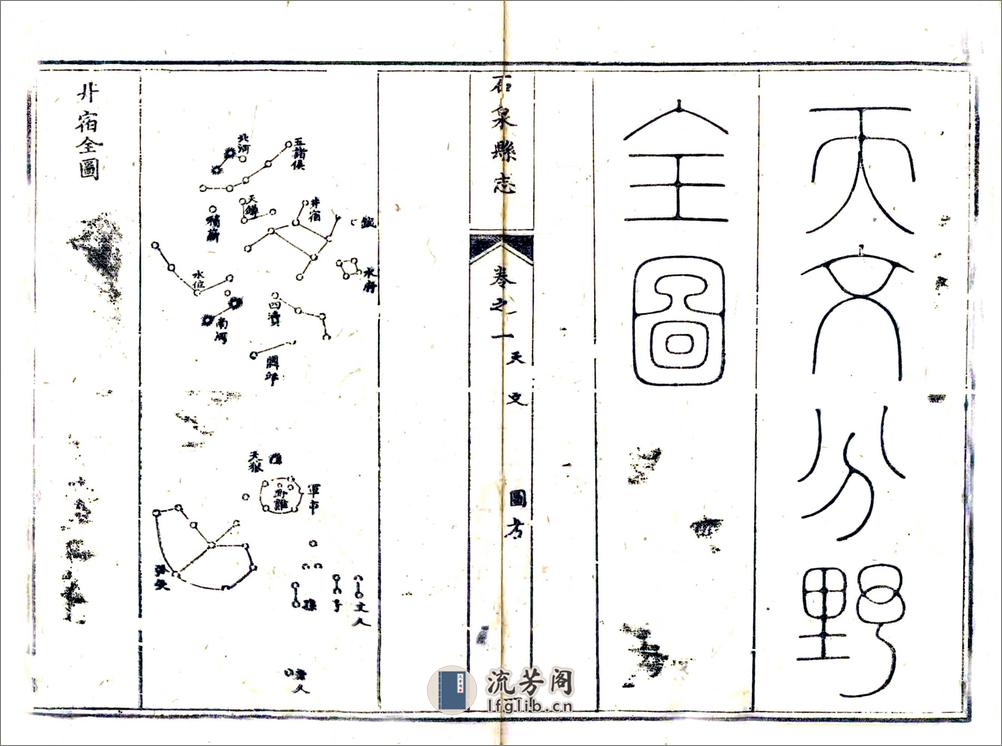 天文分野
全圖
石泉縣志
卷之一
天文
圖考
五諸侯
北河
井宿
天罇
鉞
積薪
水府
水位
四瀆
南河
闕邱
天狼
軍市
野雞
弧矢
孫
子
丈人
老人
井宿全圖
流芳阁
lfglib.cn